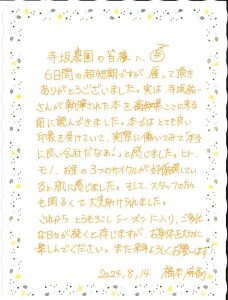 寺坂農園の皆様へ
6日間の超短期ですが、雇って頂き
ありがとうございました。実は寺坂祐一
さんが執筆された本を高知県でここに来る
前に読んできました。本ではとても良い
印象を受けていて、実際に働いてみて「本当
に良い会社だなぁ！」と感じました。ヒト、
モノ、お金の3つのサイクルが好循環してい
ると肌に感じました。そして、スタッフの方々
も明るくて大変助けられました。
これから とうもろこしシーズンに入り、ご多忙
な日々が続くと存じますが、お身体を大切に
楽しんでください。また来年よろしくお願いします
2024,8,14